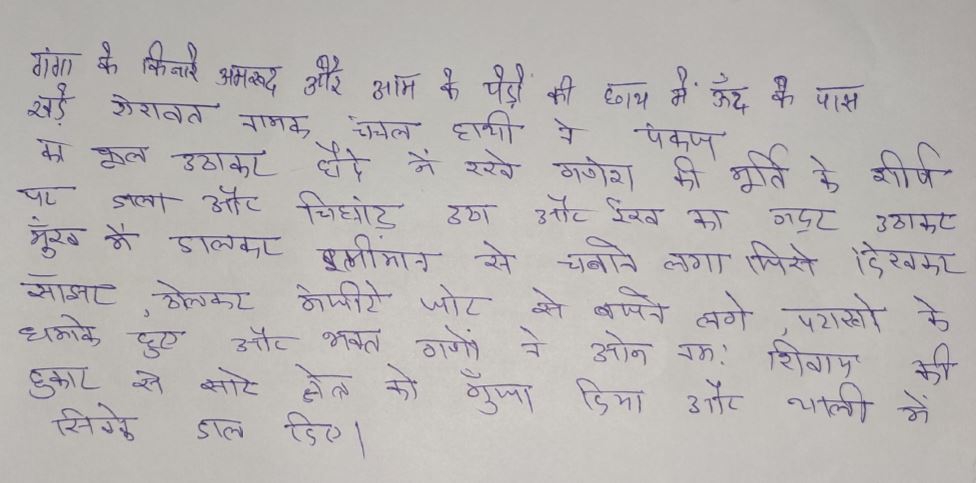 गंगा के किनारे अमरूद और आम के पेड़ों की छाय में ऊँट के पास
खड़े ऐरावत नामक चंचल हाथी ने पंकज
का फूल उठाकर हौदे में रखे गणेश की मूर्ति के शीर्ष
पर डाला और चिघांड़ उठा और ईख का गट्ठर उठाकर
मुँख में डालकर से चबाने लगा जिसे देखकर
झाझर, ढोलकर मंजीरे जोर से बजने लगे, पटाखो के
धमाके हुए और भक्त गणों ने ओम नमः शिवाय की
हुंकार से सारे क्षेत्र को गुँजा दिया और थाली में
सिक्के डाल दिए।